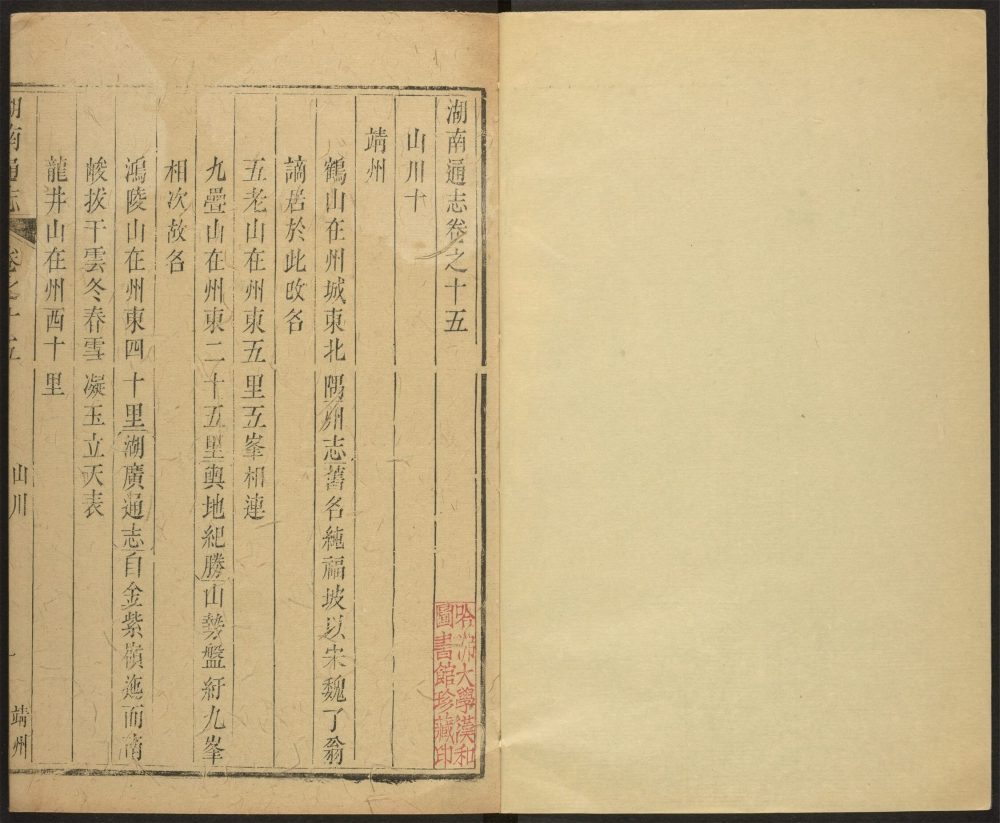 湖南通志卷之十五
哈佛大學漢和
圖書館珍藏印
山川十
靖州
鶴山在州城東北隅州志舊名純福坡以宋魏了翁
謫居於此改名
五老山在州東五里五峯相連
九疊山在州東二十五里輿地紀勝山勢盤紆九峯
相次故名
鴻陵山在州東四十里湖廣通志自金紫嶺迤而南
峻拔干雲冬春雪凝玉立天表
龍井山在州西十里
湖南通志 卷之十五 山川 靖州